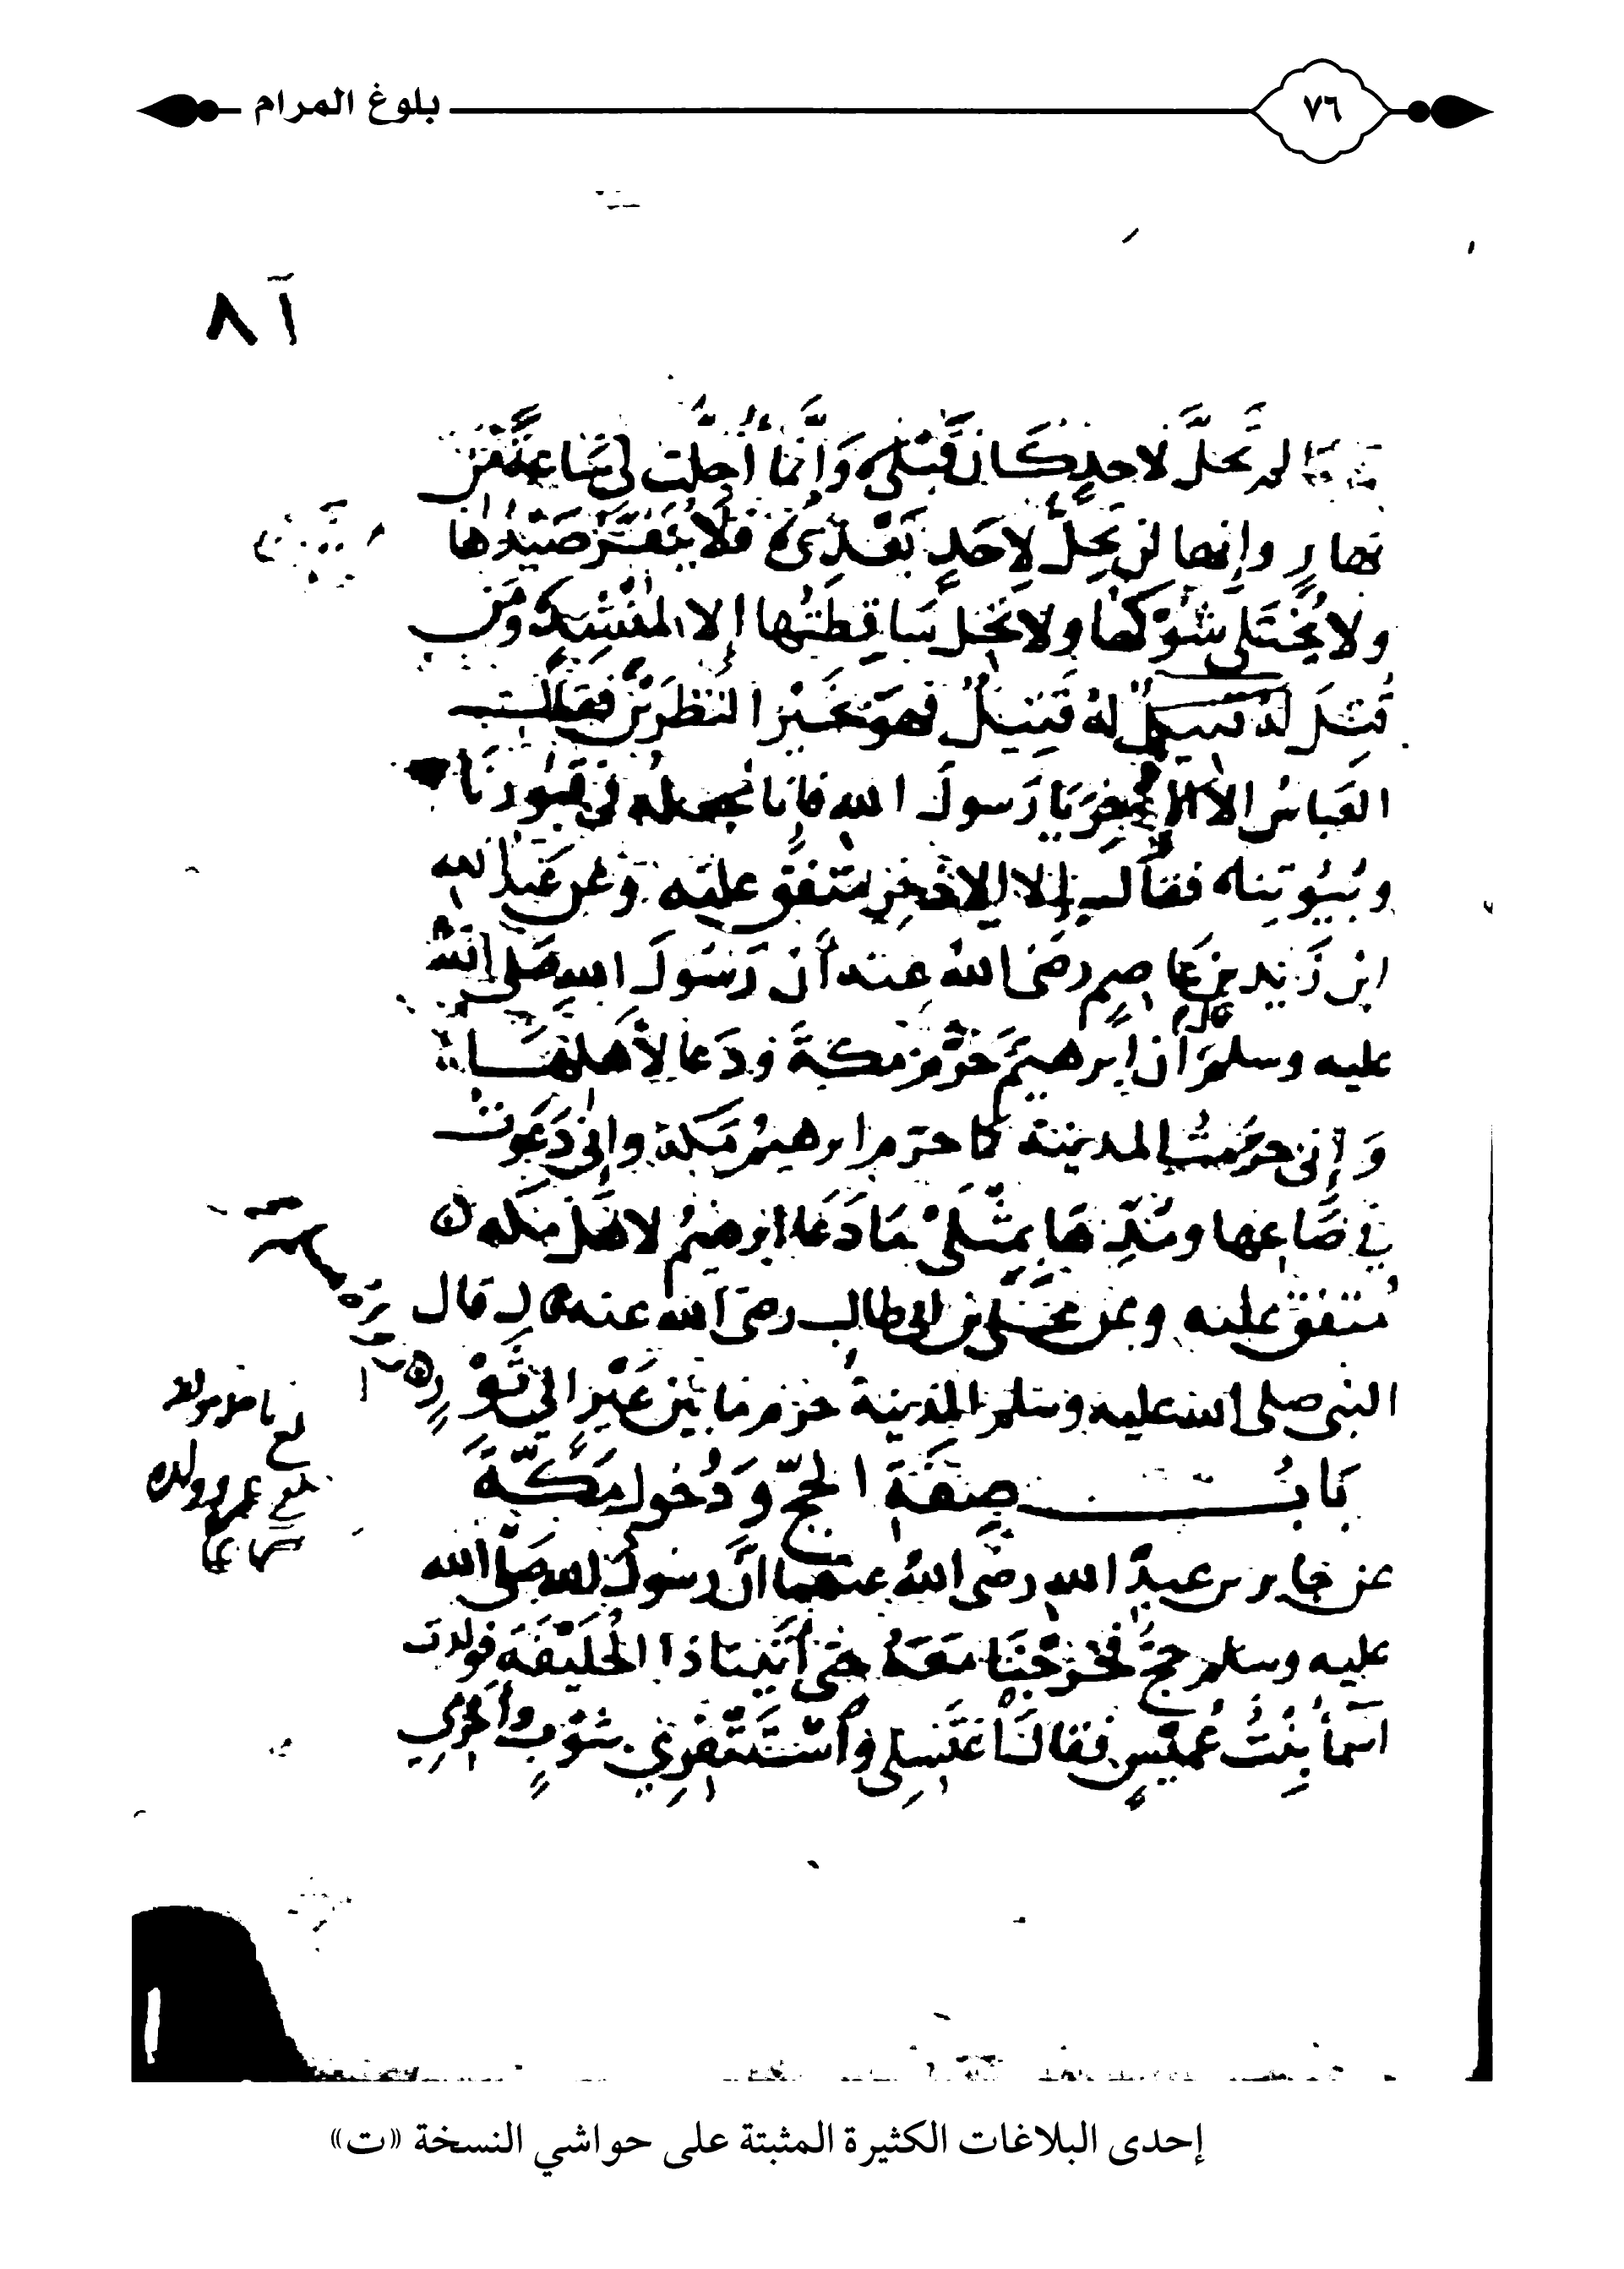 ٧٦
بلوغ المرام
٨١
لم تحلَّ لاحدٍ كان قَبْلي وَانَّما أُحِلَّت لي سَاعَةً مِن
نهارٍ وإنها لن تحِلَّ لِأحَدٍ بَعْدي فَلا يُنَفَّرُ صَيْدُها
ولا يُخْتَلى شَوْكها ولا تحِل سَاقِطَتُها إلا لمُنْشِدٍ ومَن
قُتِلَ لَهُ قَتِيلٌ فهو بخَيْر النظَرَيْنِ فقال
العَباسُ الا الإذخِرَ يَا رَسولَ الله فانا نجعله في قبورنَا
وبُيُوتِنا فقال إلا الإذخِر متفق عليه وعن عَبد الله
ابن زَيد بن عَاصِمٍ رضيَ اللهُ عنه أن رَسُولَ اللهِ صَلى اللهُ
عليه وسلم قال إن إبرهيمَ حَرَّم مكةَ ودَعَا لِأَهلهَا
وَإني حرمتُ المدينة كما حرم ابرهيمُ مَكة وإني دَعَوتُ
في صَاعِها ومُدِّهَا بمِثْلَيْ مَا دَعَا ابرهيمُ لاهل مكه
متفق عليه وعن عَلي بن ابي طالب رضيَ الله عنه قال قال
النبي صلى الله عليه وسلم المدينةُ حَرَم ما بَيْنَ عَيْرٍ الى ثَوْرٍ
بَابُ صِفَةِ الحجّ وَدُخول مَكَّةَ
عن جابر بن عبد اللهِ رضَي اللهُ عنهما أنَّ رسولَ الله صَلَّى الله
عليه وسلم حجَّ فخرَجْنَا مَعَهُ حتى أتَيْنا ذا الحُلَيْفَة فولدت
اسمآءُ بِنْتُ عُمَيْسٍ فقال اغتَسِلي وَاسْتَثْفِرِي بثَوْبٍ وأحْرِمي
إحدى البلاغات الكثيرة المثبتة على حواشي النسخة «ت»